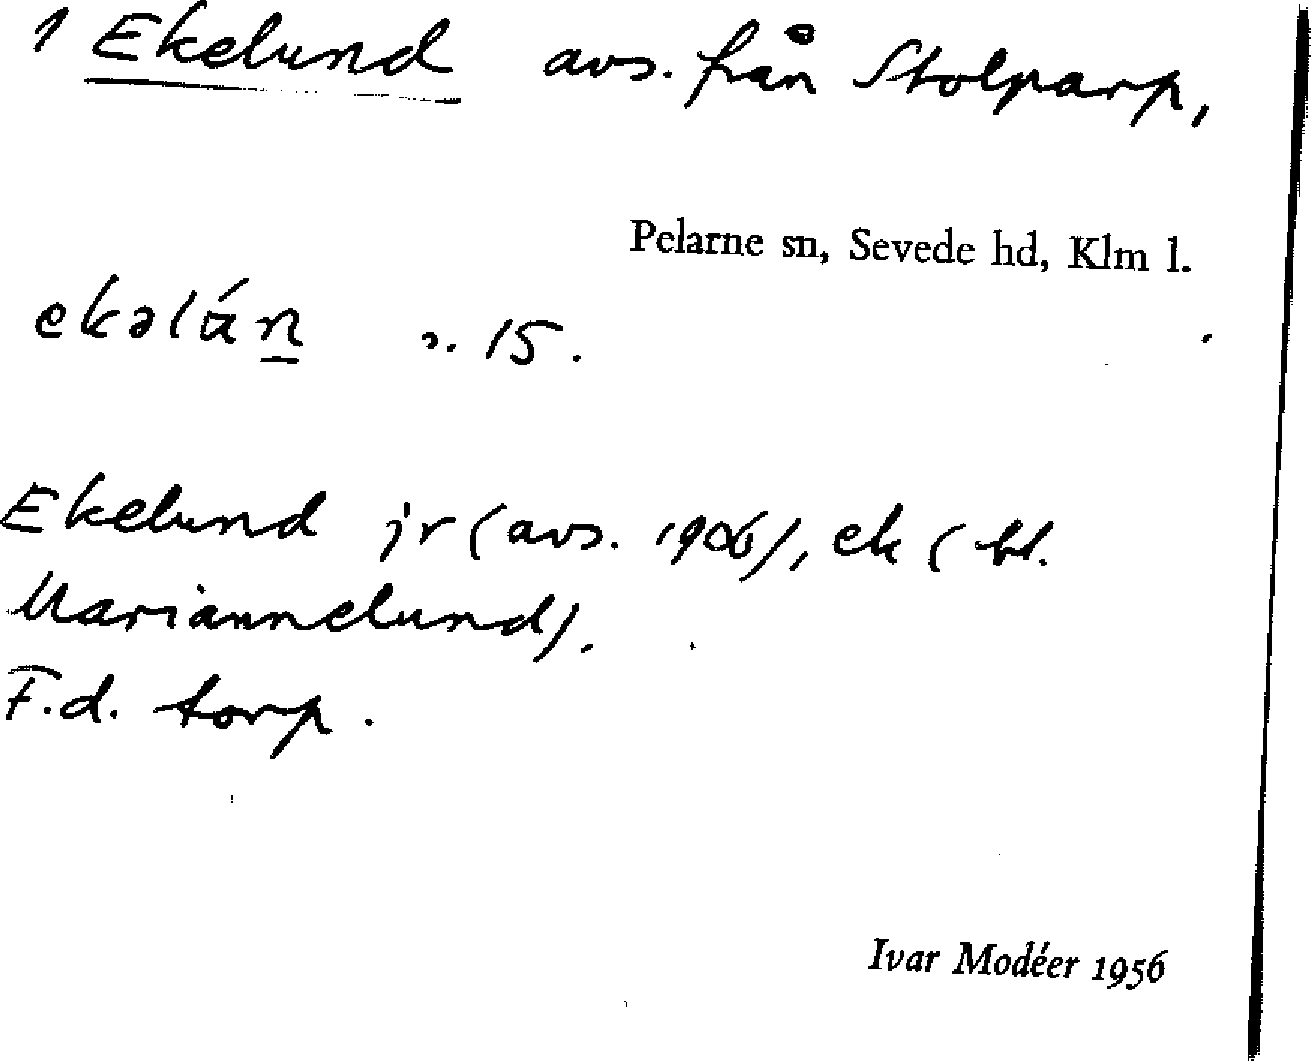 1 Ekelund avs. från Stolparp,
Pelarne sn, Sevede hd, Klm l.
ekəlán 15.
Ekelund jr (avs. 1906), ek ( bl.
Mariannelund).
F.d. torp.
Ivar Modéer 1956